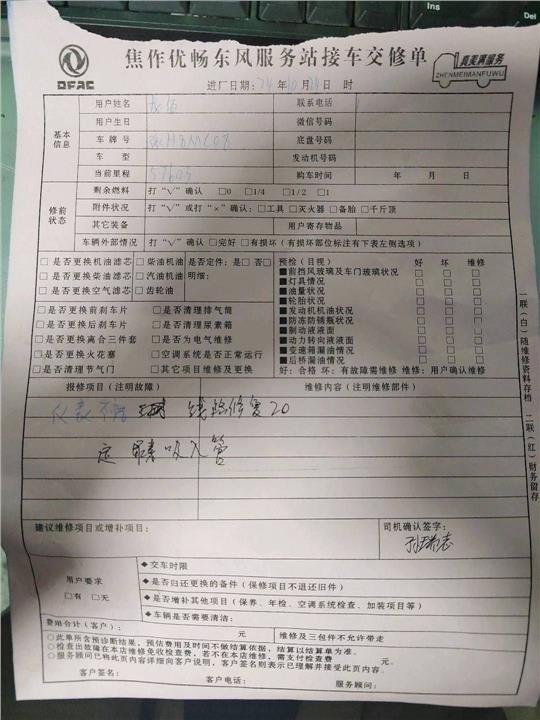 DFAC
焦作优畅东风服务站接车交修单
真美满服务
ZHENMEIMANFUWU
进厂日期：24 年 10 月 24 日 时
基本信息
用户姓名 联系电话
用户生日 微信号码
车牌号 底盘号码
车型 发动机号码
当前里程 购车时间 年 月 日
修前状态
剩余燃料 打“√”确认 □0 □1/4 □1/2 □1
附件状况 打“√”或打“×”确认：□工具 □灭火器 □备胎 □千斤顶
其它装备 用户寄存物品
车辆外部情况 打“√”确认 □完好 □有损坏（有损坏部位标注有下表左侧选项）
□是否更换机油滤芯 □柴油机油 是否定件：是□ 否□
□是否更换柴油滤芯 □汽油机油 明细：
□是否更换空气滤芯 □齿轮油
□是否更换前刹车片 □是否清理排气筒
□是否更换后刹车片 □是否清理尿素箱
□是否更换离合三件套 □是否为电气维修
□是否更换火花塞 □空调系统是否正常运行
□是否清理节气门 □其它项目维修及更换
预检（目视） 好 坏 维修
■前挡风玻璃及车门玻璃状况 □ □ □
■灯具情况 □ □ □
■油量状况 □ □ □
■轮胎状况 □ □ □
■发动机机油状况 □ □ □
■防冻防锈瓶状况 □ □ □
■制动液液面 □ □ □
■动力转向液液面 □ □ □
■变速箱漏油情况 □ □ □
■后桥漏油情况 □ □ □
好：合格 坏：有故障需维修 维修：用户确认维修
报修项目（注明故障） 维修内容（注明维修部件）
仪表不 线路修复20
定 尿素吸入管
建议维修项目或增补项目：
司机确认签字：
用户要求
□有 □无
◆交车时限
◆是否归还更换的备件（保修项目不退还旧件）
◆是否增补其他项目（保养、年检、空调系统检查、加装项目等）
◆车辆是否需要清洁：
费用合计（客户）： 元 维修及三包件不允许带走
○此单所含预诊断结果，预估费用及时间不做结算依据，结算以结算单为准。
○检查出故障在本店维修免收检查费，若不在本店维修，需支付检查费 元。
○服务顾问已将此页内容详细向客户说明，客户签名则表示已理解并接受此页内容。
客户签名： 客户电话： 服务顾问：
一联（白）随维修资料存档 二联（红）财务留存